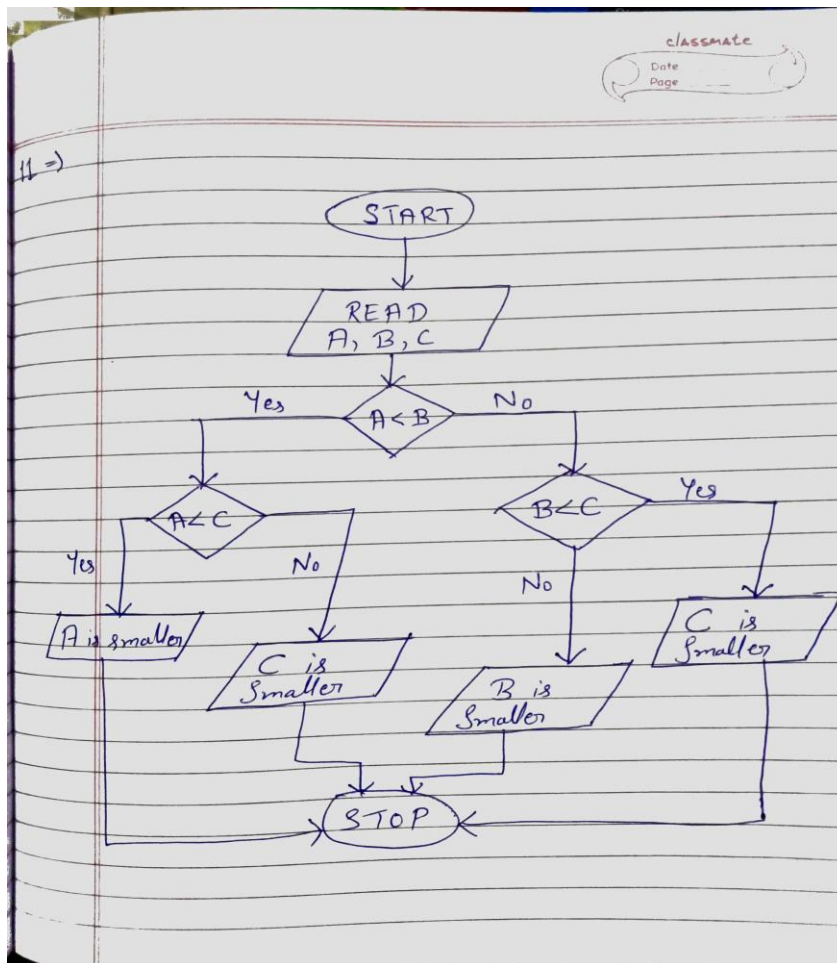 classmate
Date
Page
11 =>
START
READ
A, B, C
Yes
A < B
No
A < C
B < C
Yes
Yes
No
No
A is smaller
C is
smaller
C is
smaller
B is
smaller
STOP